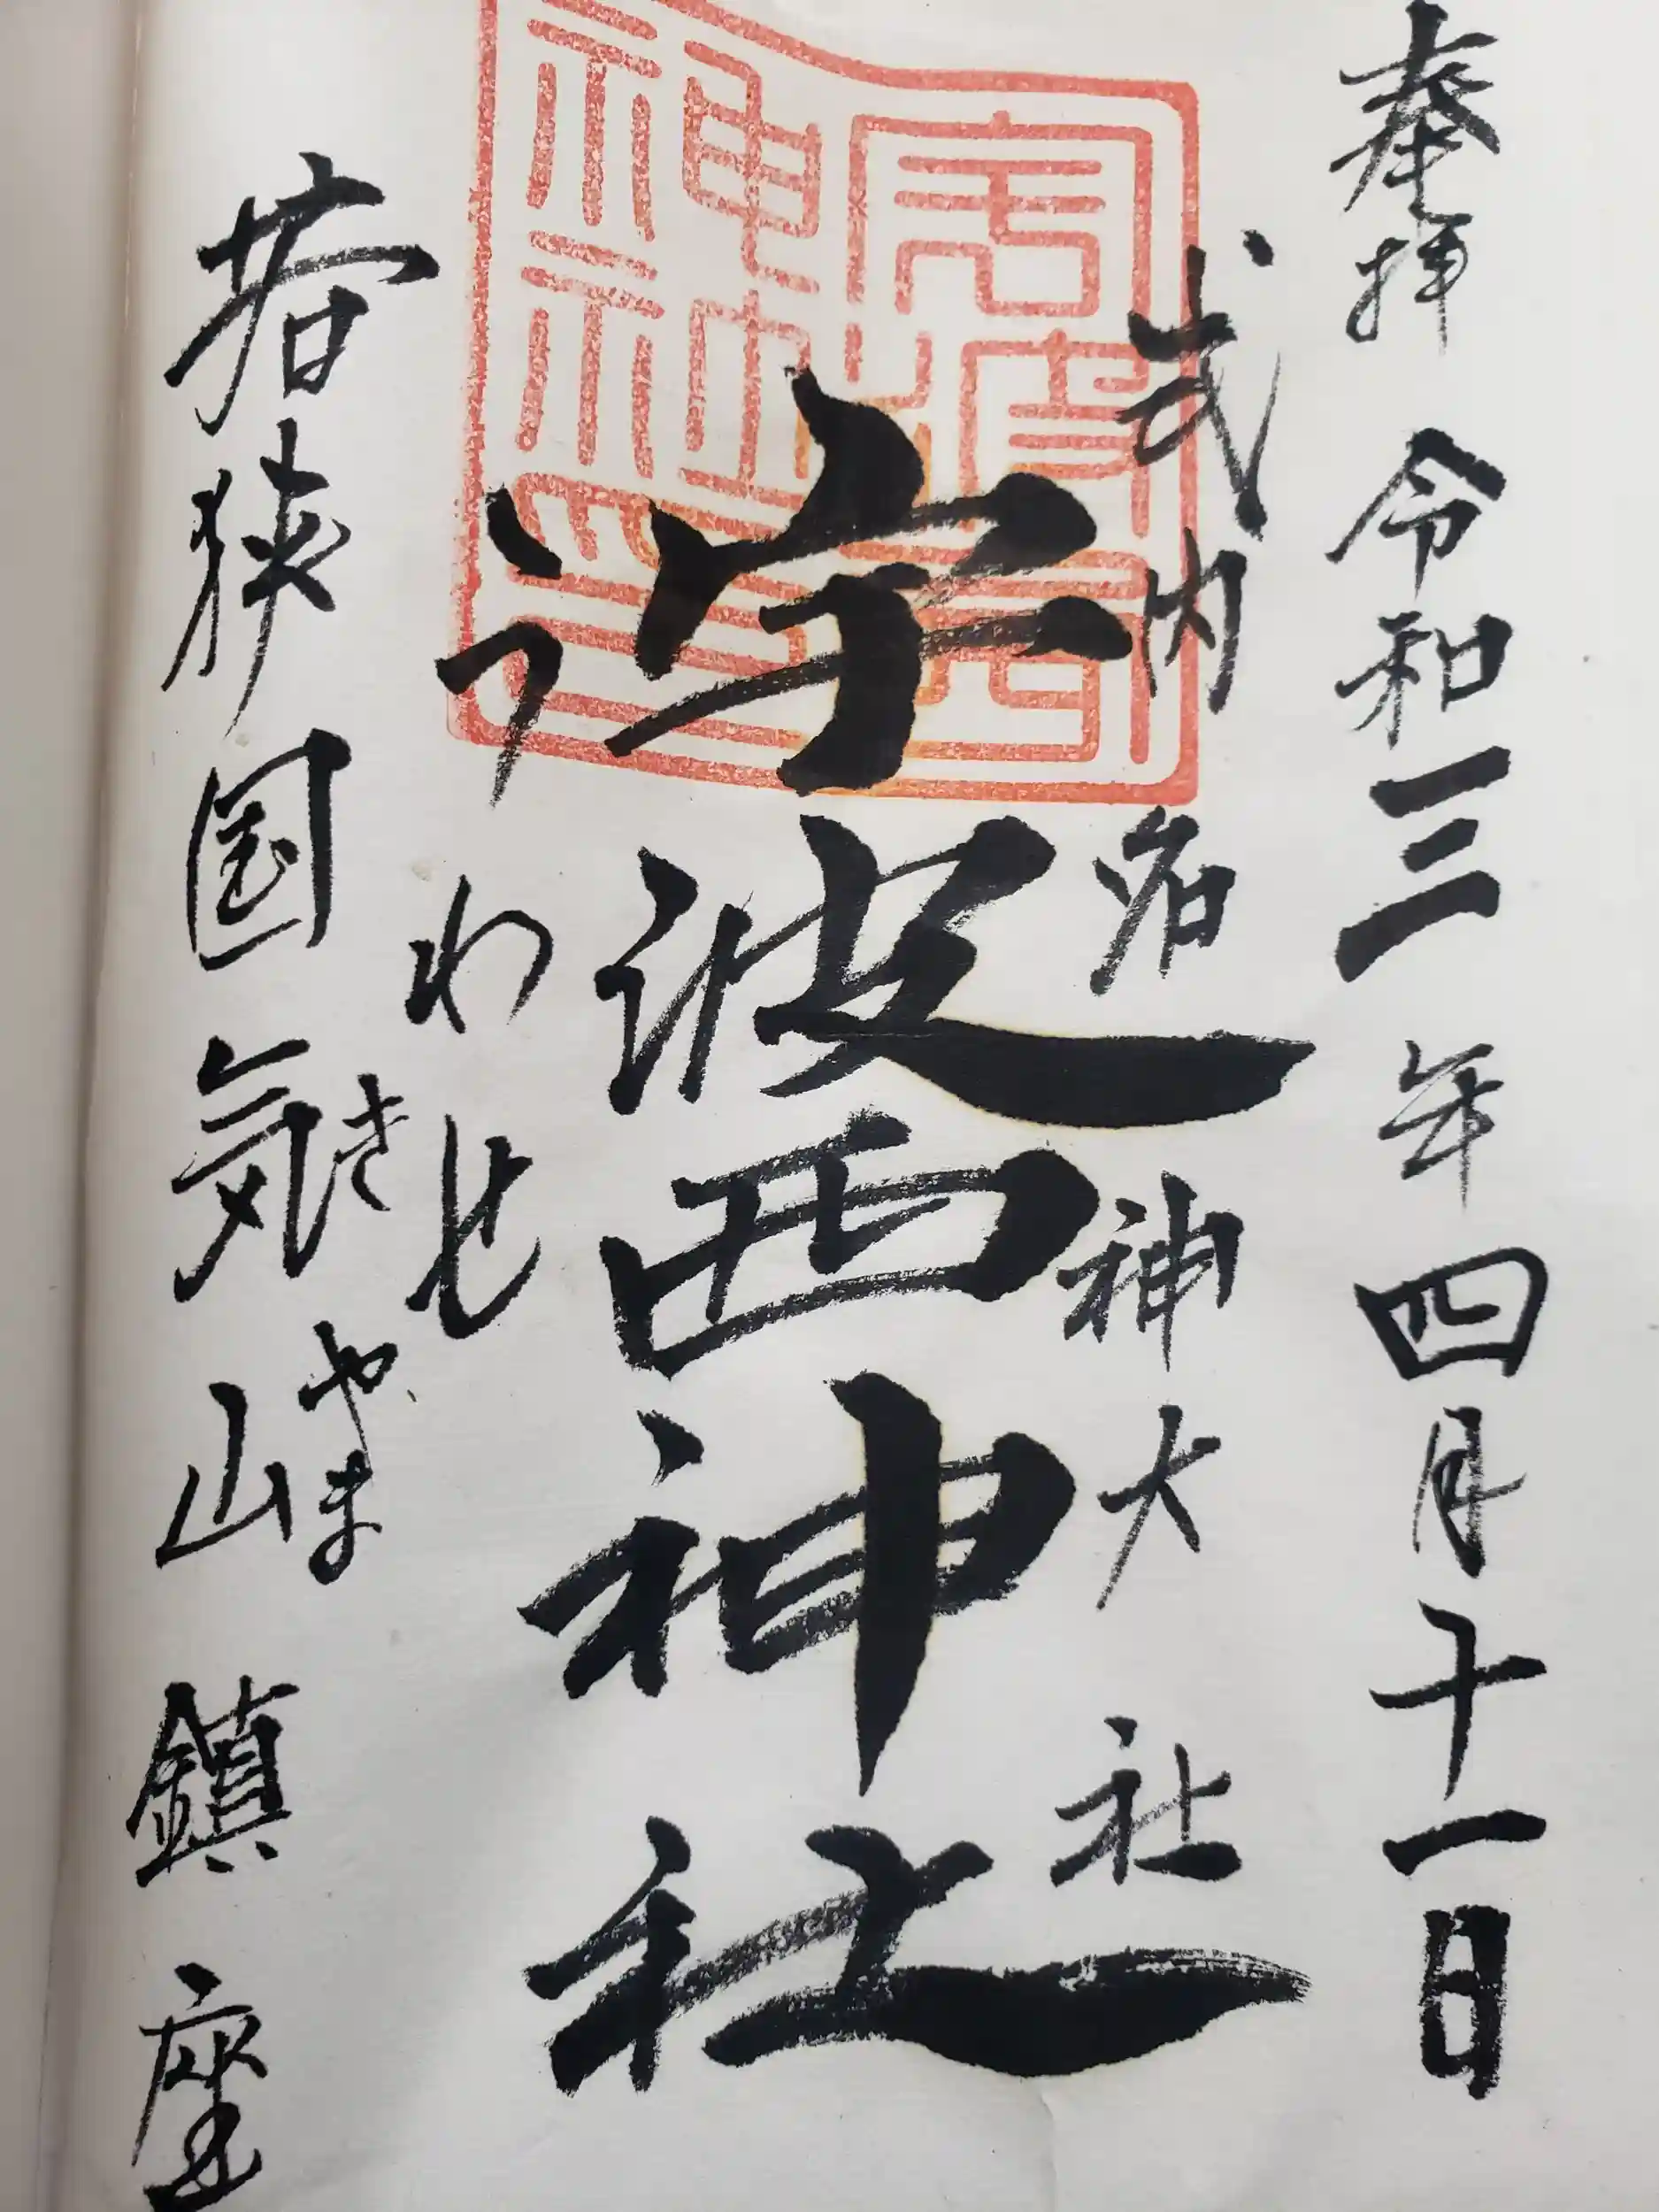 奉拝 令和三年四月十一日
式内 名神大社
宇波西神社
うわせ
きやま
若狭国気山 鎮座